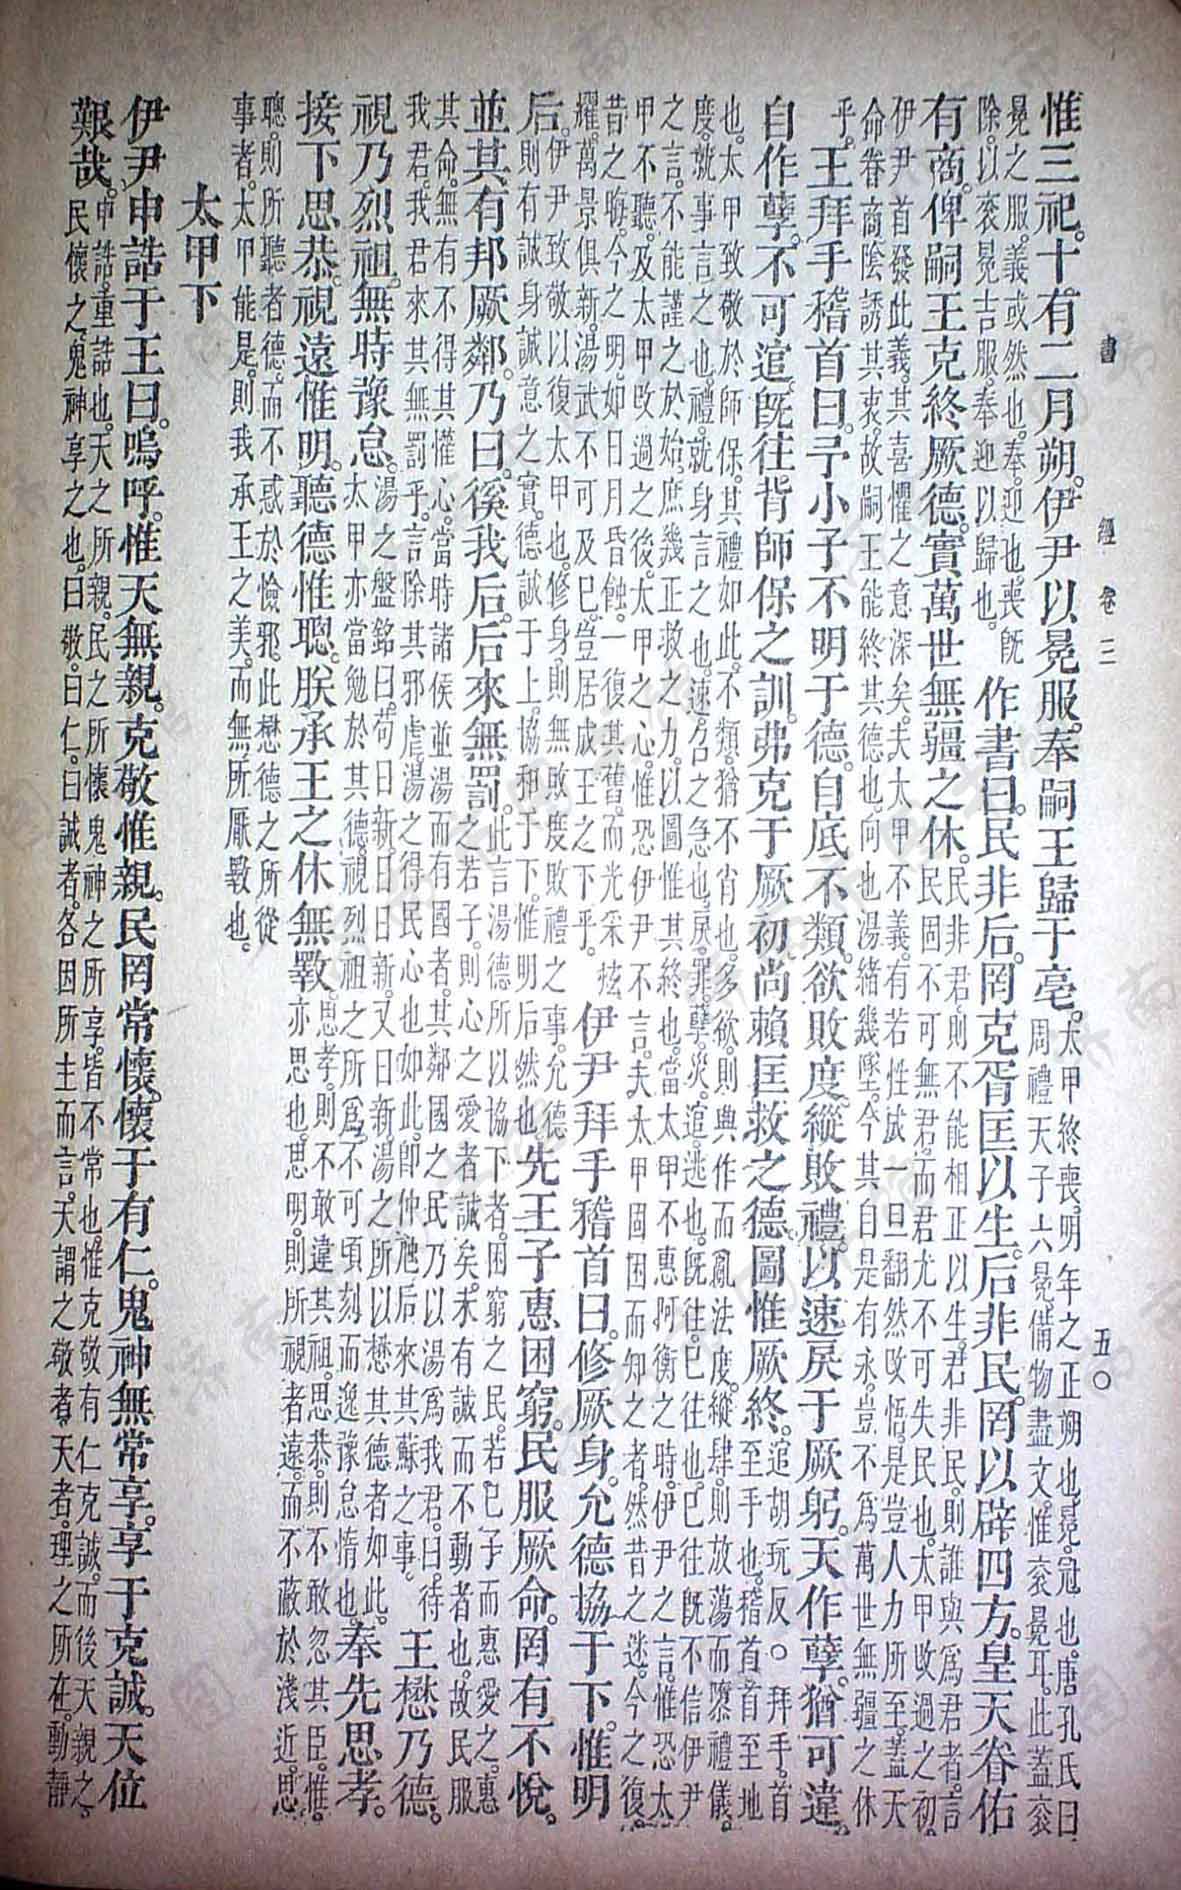 書 經 卷三 五〇
惟三祀。十有二月朔。伊尹以冕服。奉嗣王歸于亳。
太甲終喪。明年之正朔也。冕。冠也。唐孔氏曰
周禮天子六冕。備物盡文。惟衮冕耳。此蓋衮
冕之服。義或然也。奉迎也。喪既
除。以衮冕吉服。奉迎以歸也。
作書曰。民非后。罔克胥匡以生。后非民。罔以辟四方。皇天眷佑
有商。俾嗣王克終厥德。實萬世無疆之休。
民非君。則不能相正以生。君非民。則誰與爲君者。言
民固不可無君。而君尤不可失民也。太甲改過之初。
伊尹首發此義。其喜懼之意深矣。夫太甲不義。有若性成。一旦翻然改悟。是豈人力所至。蓋天
命眷商。陰誘其衷。故嗣王能終其德也。向也湯緒幾墜。今其自是有永。豈不爲萬世無疆之休
乎。
王拜手稽首曰。予小子不明于德。自底不類。欲敗度。縱敗禮。以速戾于厥躬。天作孽。猶可違。
自作孽。不可逭。既往。背師保之訓。弗克于厥初。尚賴匡救之德。圖惟厥終。
逭。胡玩反。〇拜手。首
至手也。稽首。首至地
也。太甲致敬於師保。其禮如此。不類。猶不肖也。多欲。則興作而亂法度。縱肆。則放蕩而隳禮儀。
度。就事言之也。禮。就身言之也。速。召之急也。戾。罪。孽。災。逭。逃也。既往。已往也。已往既不信伊尹
之言。不能謹之於始。庶幾正救之力。以圖惟其終也。當太甲不惠阿衡之時。伊尹之言。惟恐太
甲不聽。及太甲改過之後。太甲之心。惟恐伊尹不言。夫太甲固困而知之者。然昔之迷。今之復。
昔之晦。今之明。如日月昏蝕。一復其舊。而光采炫
耀。萬景俱新。湯武不可及已。豈居成王之下乎。
伊尹拜手稽首曰。修厥身。允德協于下。惟明
后。
伊尹致敬以復太甲也。修身。則無敗度敗禮之事。允德
則有誠身誠意之實。德誠于上。協和于下。惟明后然也
先王子惠困窮。民服厥命。罔有不悅。
並其有邦厥鄰。乃曰。徯我后。后來無罰。
此言湯德所以協下者。困窮之民。若己子而惠愛之。惠
之若子。則心之愛者誠矣。未有誠而不動者也。故民服
其命。無有不得其懽心。當時諸侯並湯而有國者。其鄰國之民。乃以湯爲我君。曰。待
我君。我君來其無罰乎。言除其邪虐。湯之得民心也如此。即仲虺后來其蘇之事。
王懋乃德。
視乃烈祖。無時豫怠。
湯之盤銘曰。苟日新。日日新。又日新。湯之所以懋其德者如此。
太甲亦當勉於其德。視烈祖之所爲。不可頃刻而逸豫怠惰也。
奉先思孝。
接下思恭。視遠惟明。聽德惟聰。朕承王之休無斁。
思孝。則不敢違其祖。思恭。則不敢忽其臣。惟。
亦思也。思明。則所視者遠。而不蔽於淺近。思
聰。則所聽者德。而不惑於憸邪。此懋德之所從
事者。太甲能是。則我承王之美。而無所厭斁也。
太甲下
伊尹申誥于王曰。嗚呼。惟天無親。克敬惟親。民罔常懷。懷于有仁。鬼神無常享。享于克誠。天位
艱哉。
申誥。重誥也。天之所親。民之所懷。鬼神之所享。皆不常也。惟克敬有仁克誠。而後天親之。
民懷之。鬼神享之也。曰敬。曰仁。曰誠者。各因所主而言。天謂之敬者。天者。理之所在。動靜